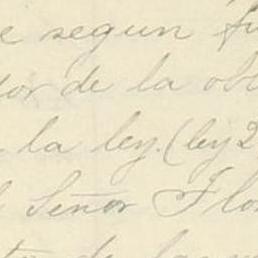 e segun fu
dor de la obl
la ley. (ley 2
Señor Flor
de la